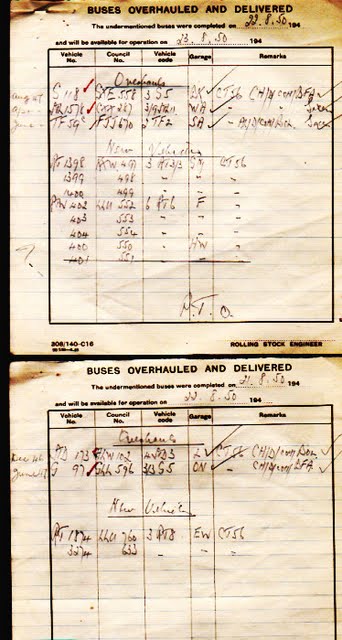 BUSES OVERHAULED AND DELIVERED
The undermentioned buses were completed on 22.8.50 194
and will be available for operation on 23.8.50 194
Vehicle No. Council No. Vehicle code Garage Remarks
Overhauls
G 118 GXE 558 3 G5 CT56 CH/D/conv/BFA
STD 1578 3/9 WA "
June TF 59 FJJ 670 2 TF2 SA "
New Vehicles
RT 1398 497 3 RT3/3 CT56
1399 498 " " "
1400 499 " " "
RTW 402 LLU 552 6 RT6 F "
403 553 " " "
404 554 " " "
400 550 " HW "
401 551 " " "
?
R.T.O.
306/140-C16
ROLLING STOCK ENGINEER
BUSES OVERHAULED AND DELIVERED
The undermentioned buses were completed on 21.8.50 194
and will be available for operation on 22.8.50 194
Vehicle No. Council No. Vehicle code Garage Remarks
Overhauls
Dec 46 STD 173 HLW 102 4 STD3 CT56 CH/D/conv/
June 47 G 97 596 3/3 G5 ON " CH/D/conv/BFA
New Vehicles
RT 760 3 RT8 EW CT56
3274 633 " " "